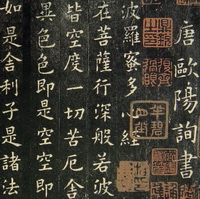 唐歐陽詢書
波羅蜜多心經
在菩薩行深般若波
皆空度一切苦厄舍
異色色即是空空即
如是舍利子是諸法